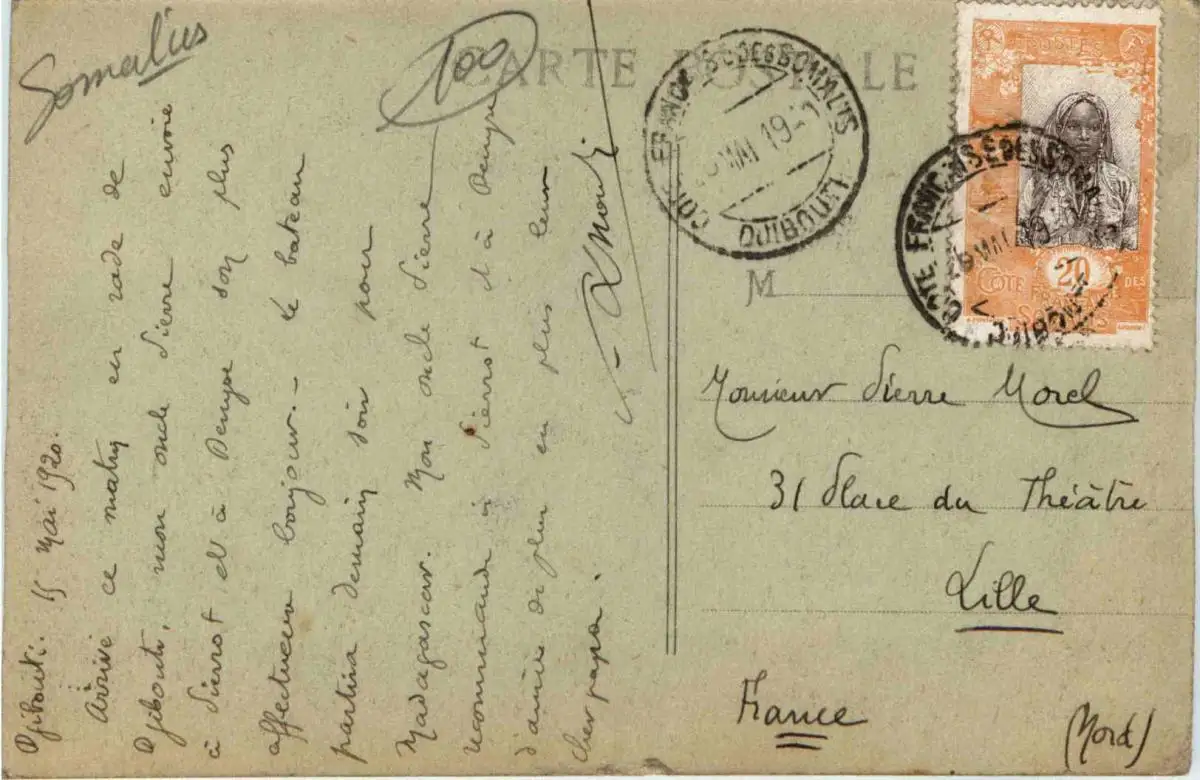 Somalis
100
CARTE POSTALE
Djibouti. 15 Mai 1920.
Arrivé ce matin en rade de
Djibouti, mon oncle Pierre envoie
à Pierrot et à son plus
affectueux bonjour. - le bateau
partira demain soir pour
Madagascar. Mon oncle Pierre
recommande à Pierrot et à
d'aimer de plus en plus leur
cher papa.
COTE FRANCAISE DES SOMALIS
MAI 19
DJIBOUTI
COTE FRANCAISE DES SOMALIS
MAI 19
DJIBOUTI
POSTES
20
COTE FRANÇAISE DES
SOMALIS
M
Monsieur Pierre Morel
31 Place du Théâtre
Lille
France
(Nord)